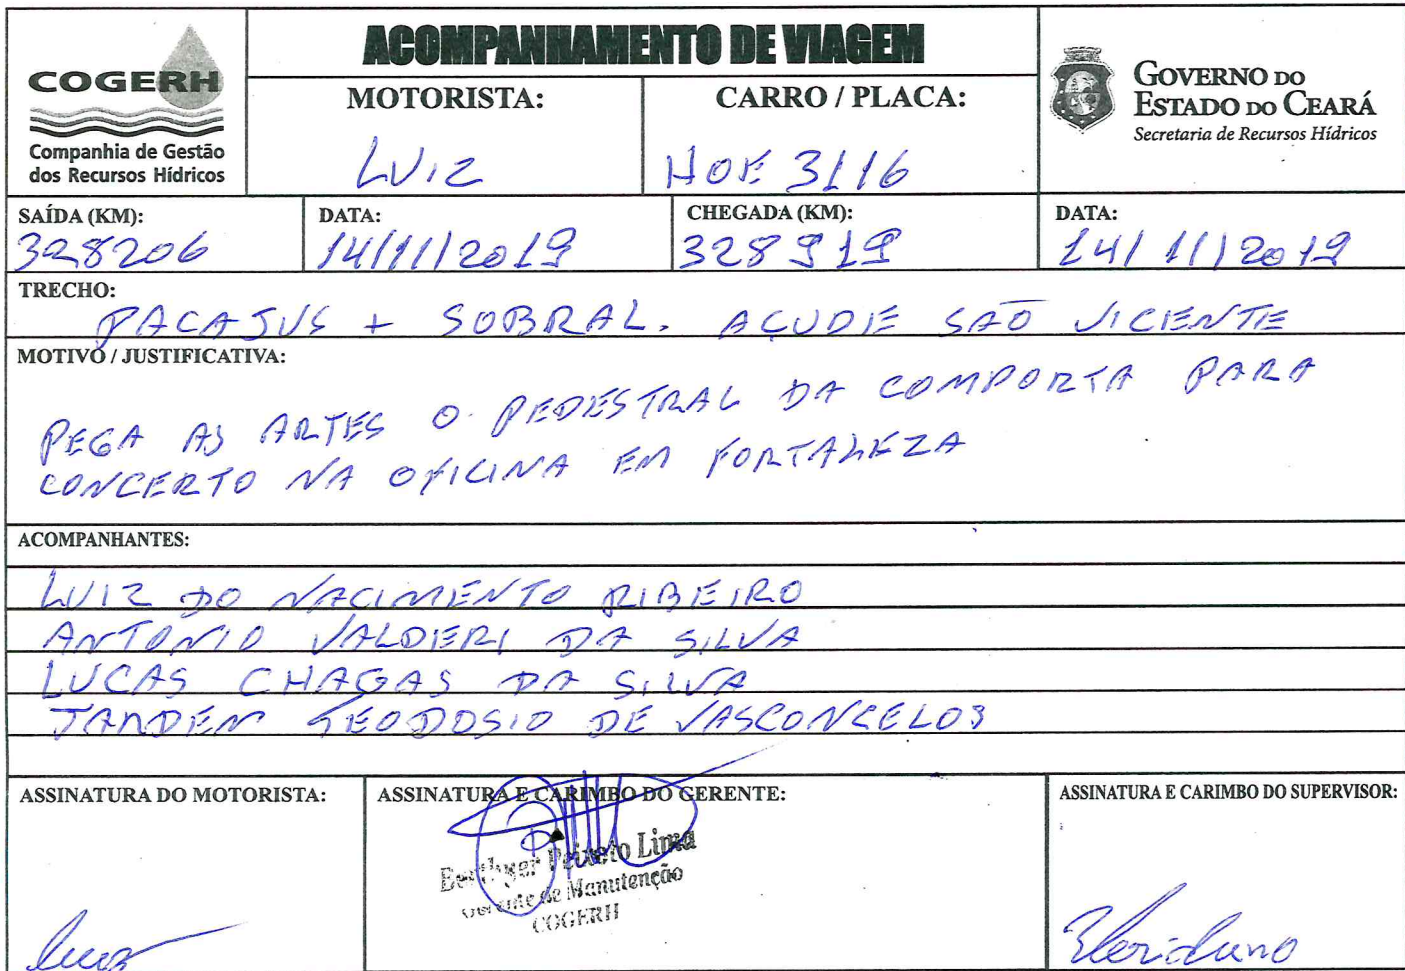 COGERH
Companhia de Gestão
dos Recursos Hídricos
ACOMPANHAMENTO DE VIAGEM
MOTORISTA:
LUIZ
CARRO / PLACA:
HOE 3116
GOVERNO DO
ESTADO DO CEARÁ
Secretaria de Recursos Hídricos
SAÍDA (KM):
328206
DATA:
14/11/2019
CHEGADA (KM):
328919
DATA:
14/11/2019
TRECHO:
PACAJUS + SOBRAL. AÇUDE SÃO VICENTE
MOTIVO / JUSTIFICATIVA:
PEGA AS ARTES O PEDESTRAL DA COMPORTA PARA
CONCERTO NA OFICINA EM FORTALEZA
ACOMPANHANTES:
LUIZ DO NACIMENTO RIBEIRO
ANTONIO VALDERI DA SILVA
LUCAS CHAGAS DA SILVA
TEODOSIO DE VASCONCELOS
ASSINATURA DO MOTORISTA:
Luiz
ASSINATURA E CARIMBO DO GERENTE:
Peixoto Lima
Gerente de Manutenção
COGERH
ASSINATURA E CARIMBO DO SUPERVISOR: